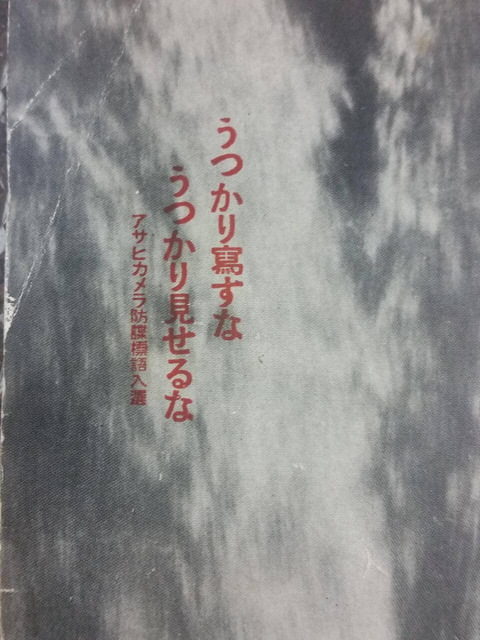 うつかり寫すな
うつかり見せるな
アサヒカメラ防諜標語入選